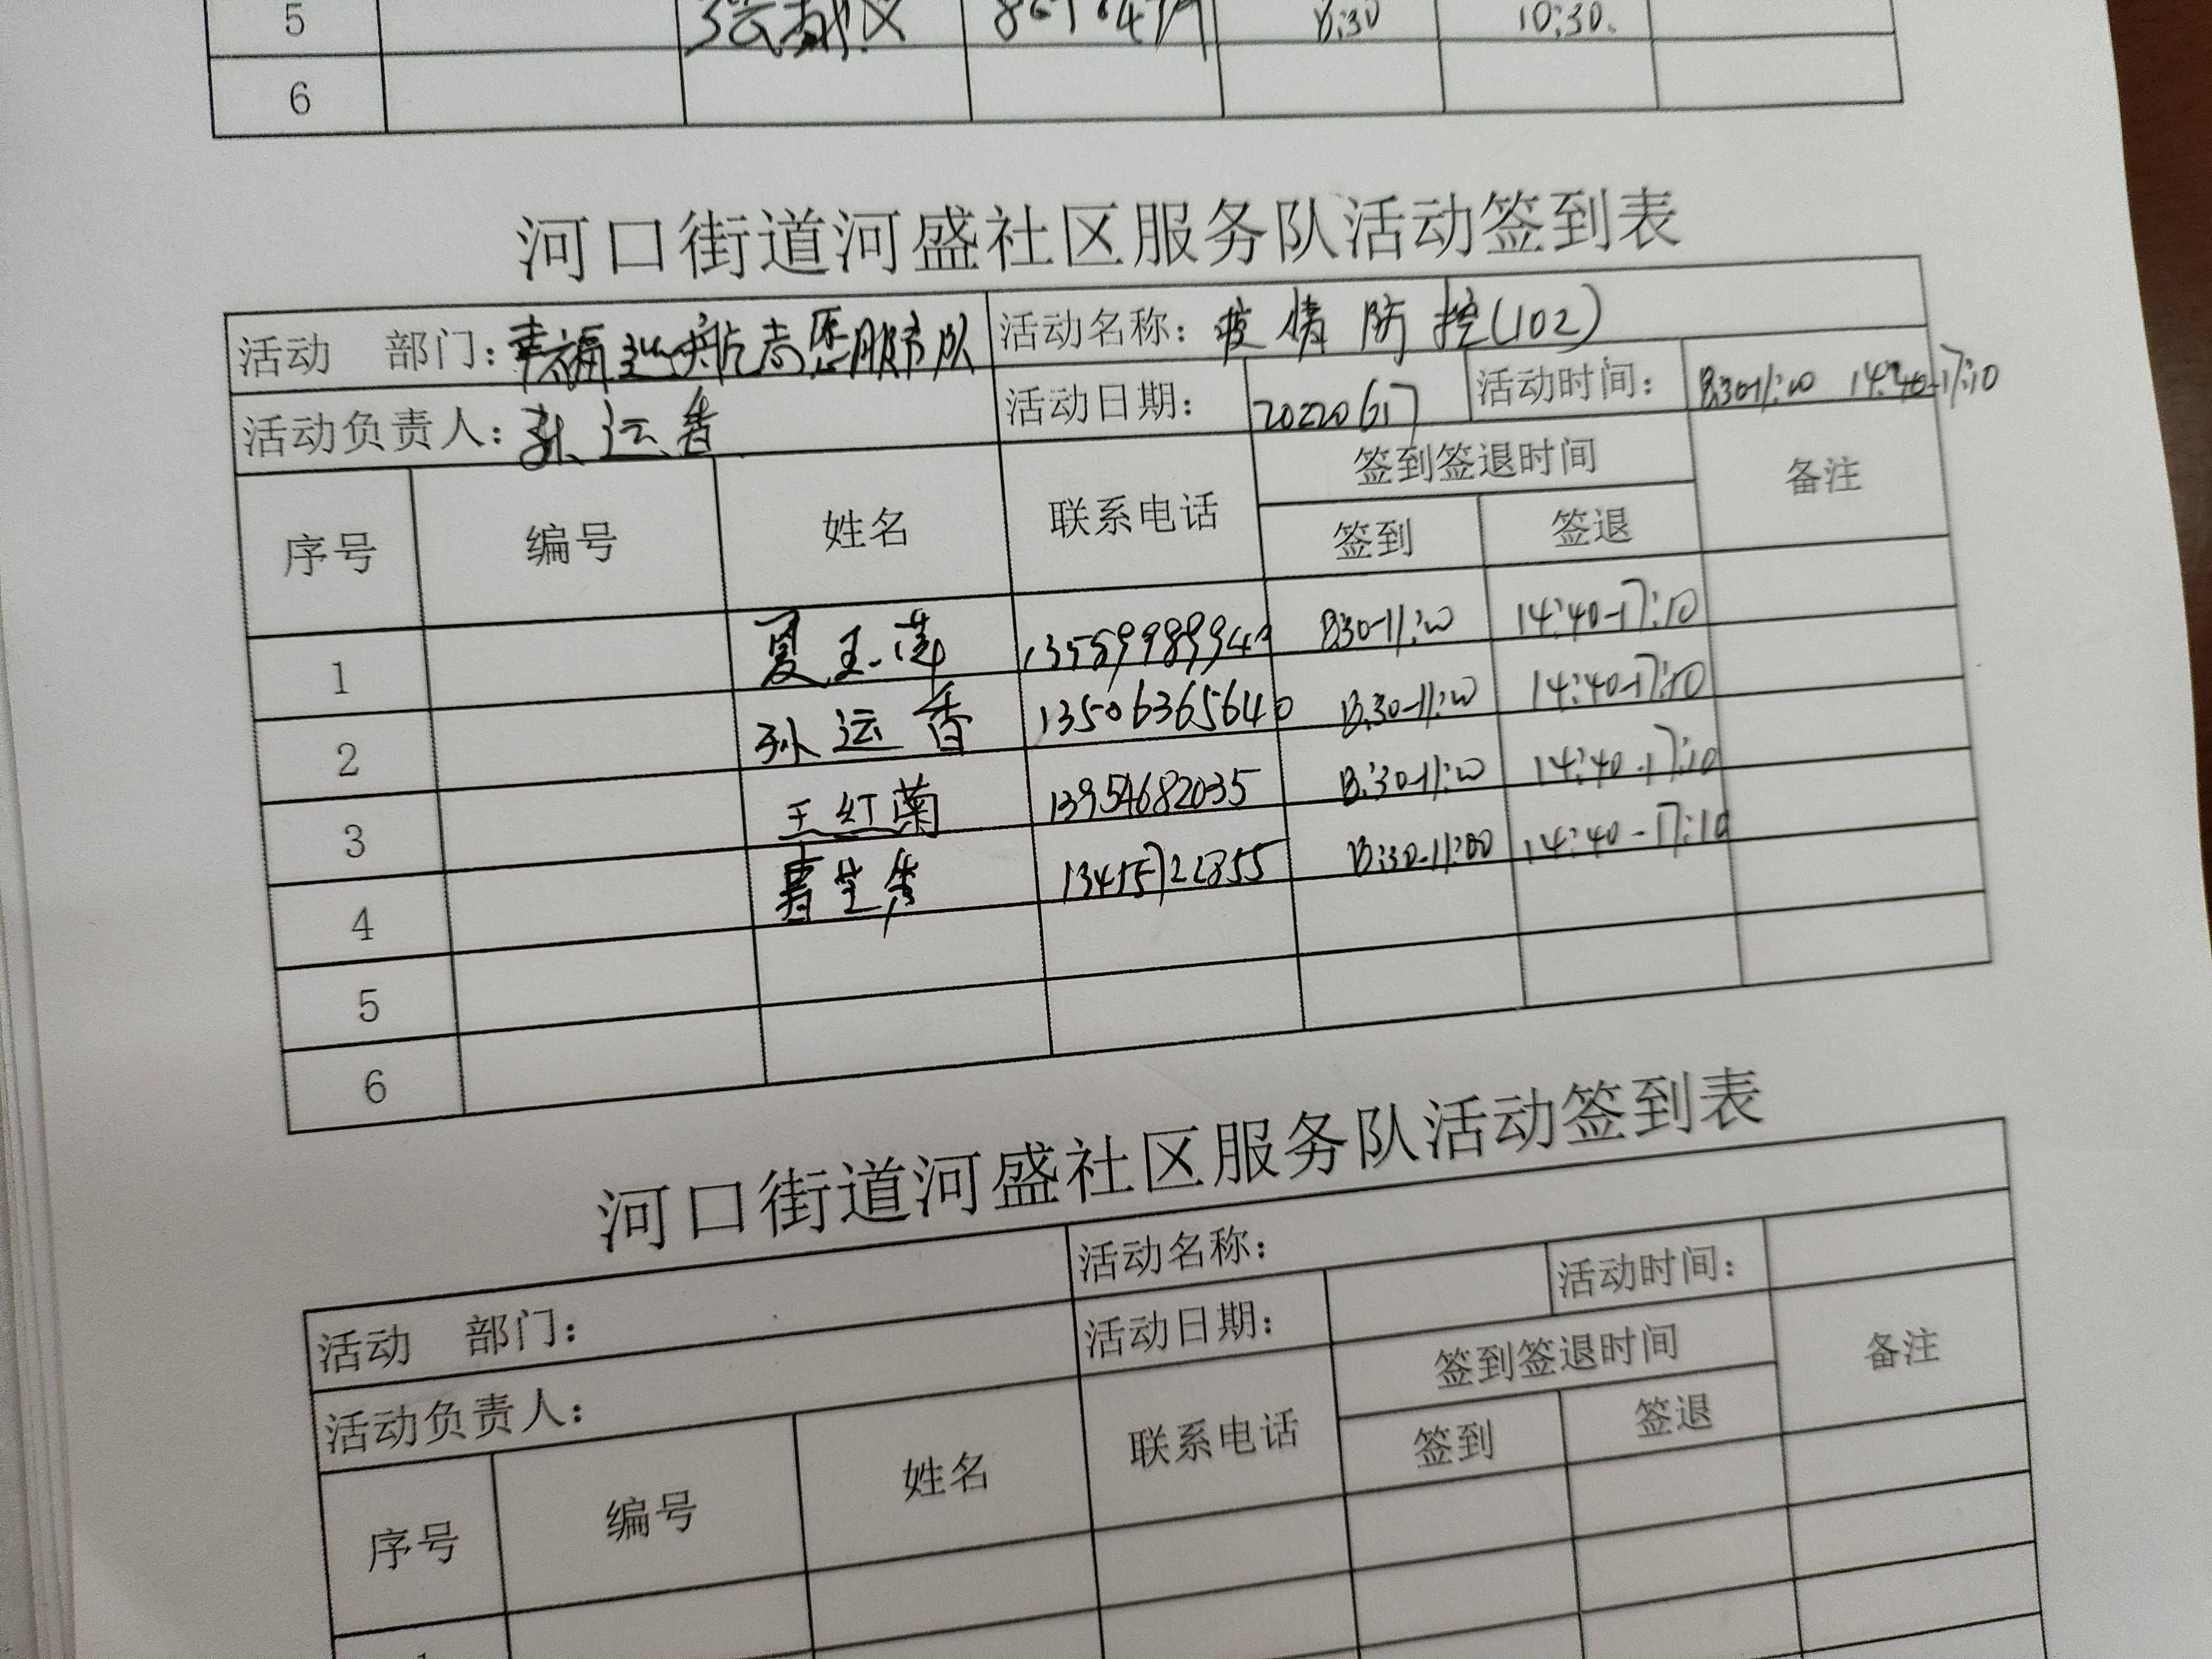 5 8:30 10:30
6
河口街道河盛社区服务队活动签到表
活动 部门：幸福巡航志愿服务队 活动名称：疫情防控(102)
活动负责人：孙运香 活动日期：20220617 活动时间：8:30-11:00 14:40-17:10
序号 编号 姓名 联系电话 签到签退时间 备注
签到 签退
1 夏玉莲 8:30-11:00 14:40-17:10
2 孙运香 13506365640 8:30-11:00 14:40-17:10
3 王红菊 13954682035 8:30-11:00 14:40-17:10
4 13455722855 8:30-11:00 14:40-17:10
5
6
河口街道河盛社区服务队活动签到表
活动 部门： 活动名称：
活动负责人： 活动日期： 活动时间：
序号 编号 姓名 联系电话 签到签退时间 备注
签到 签退